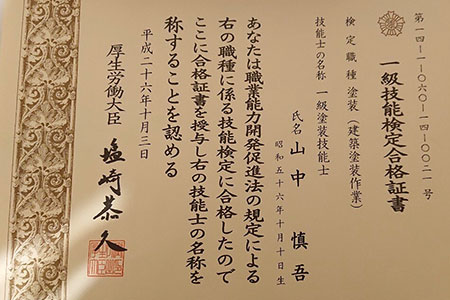 第一四-一-〇六〇-一四-〇〇二一号
一級技能検定合格証書
検定職種 塗装（建築塗装作業）
技能士の名称 一級塗装技能士
氏名 山中 慎吾
昭和五十六年十月十日生
あなたは職業能力開発促進法の規定による
右の職種に係る技能検定に合格したので
ここに合格証書を授与し右の技能士の名称を
称することを認める
平成二十六年十月三日
厚生労働大臣 塩崎恭久